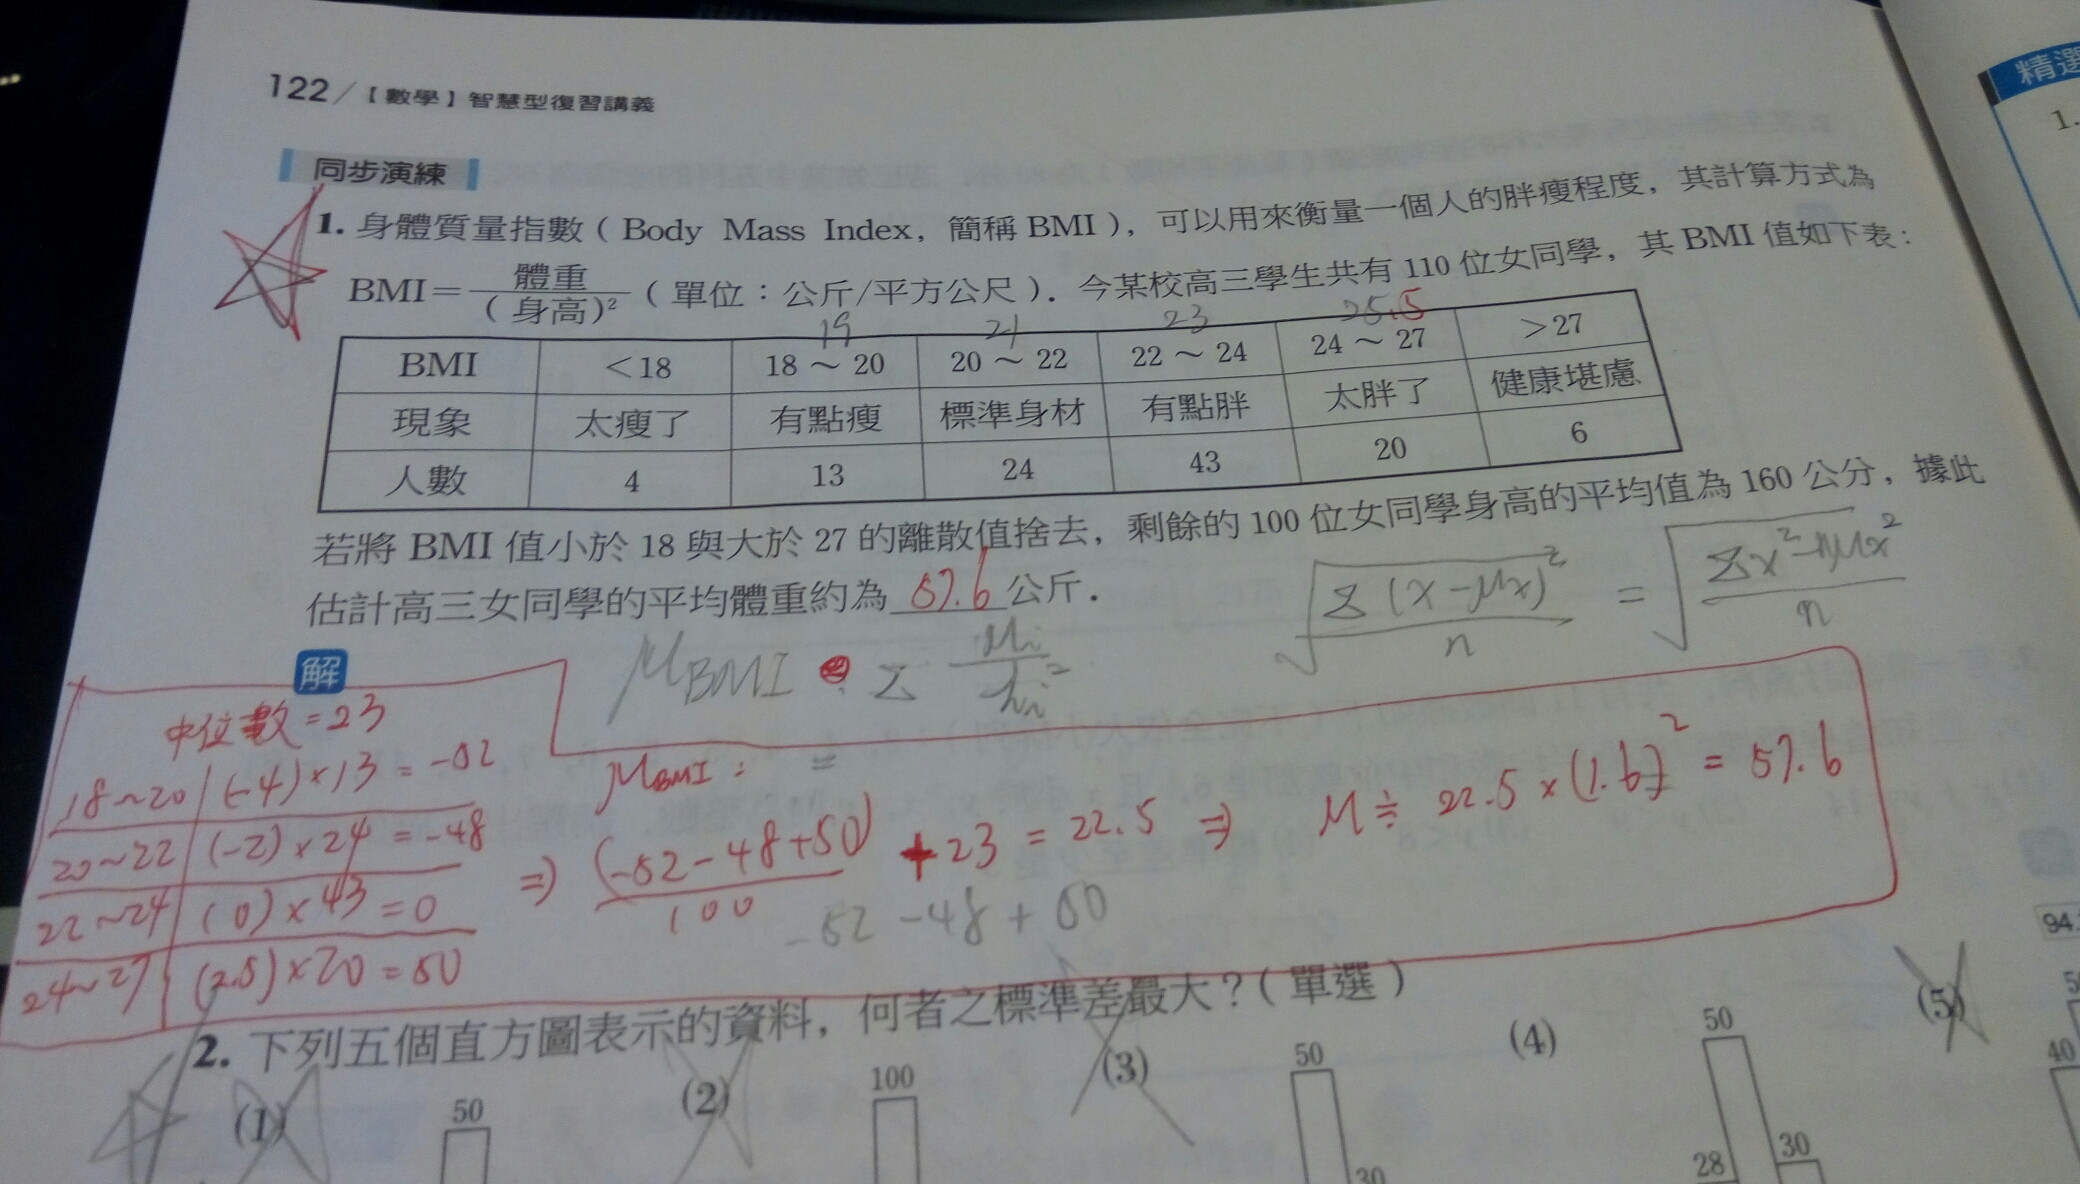 122／【數學】智慧型復習講義
精選
1.
同步演練
1. 身體質量指數（Body Mass Index, 簡稱 BMI），可以用來衡量一個人的胖瘦程度，其計算方式為
BMI＝體重/(身高)²（單位：公斤/平方公尺）. 今某校高三學生共有 110 位女同學，其 BMI 值如下表：
19 21 23 25.5
BMI ＜18 18～20 20～22 22～24 24～27 ＞27
現象 太瘦了 有點瘦 標準身材 有點胖 太胖了 健康堪慮
人數 4 13 24 43 20 6
若將 BMI 值小於 18 與大於 27 的離散值捨去，剩餘的 100 位女同學身高的平均值為 160 公分，據此
估計高三女同學的平均體重約為 57.6 公斤.
√(Σ(x-μx)²/n) = √(Σx²-nμx²/n)
解
μBMI Σ Mi/hi²
中位數=23
18~20 (-4)×13=-52
20~22 (-2)×24=-48
22~24 (0)×43=0
24~27 (2.5)×20=50
μBMI: =
⇒ (-52-48+50)/100 +23=22.5 ⇒ M≑22.5×(1.6)²=57.6
-52-48+50
2. 下列五個直方圖表示的資料，何者之標準差最大？（單選）
(1) (2) (3) (4) (5)
50 100 50 50 40
30 28 30
94.